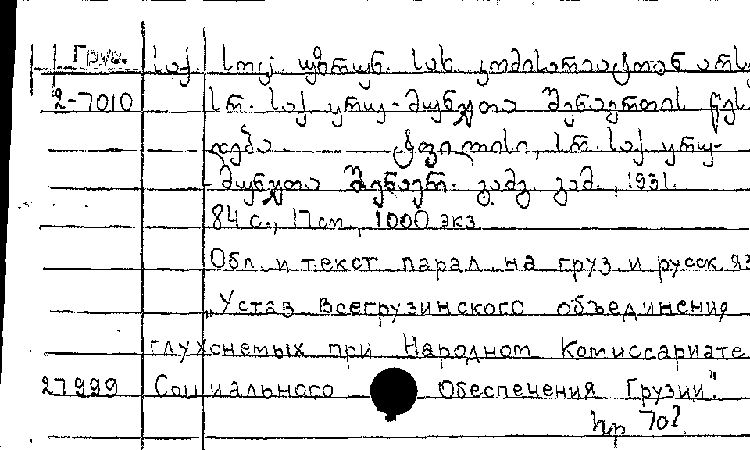 Груз.
საქ. სოც. უზრუნ. სახ. კომისარიატთან არსე
2-7010 სრ. საქ. ყრუ-მუნჯთა შენაერთის წეს
დება. ტფილისი, სრ. საქ. ყრუ-
მუნჯთა შენაერ. გამგ. გამ., 1931.
84 с., 17 см, 1000 экз.
Обл. и текст парал. на груз. и русск. яз
„Устав Всегрузинского объединения
глухонемых при Народном Комиссариате
27999 Социального Обеспечения Грузии".